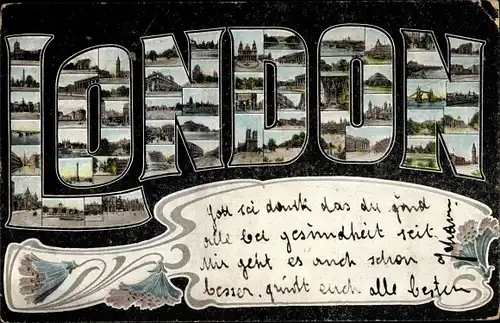 LONDON
Gott sei dank das du und
alle bei gesundheit seit.
Mir geht es auch schon
besser, grüßt euch alle bestens